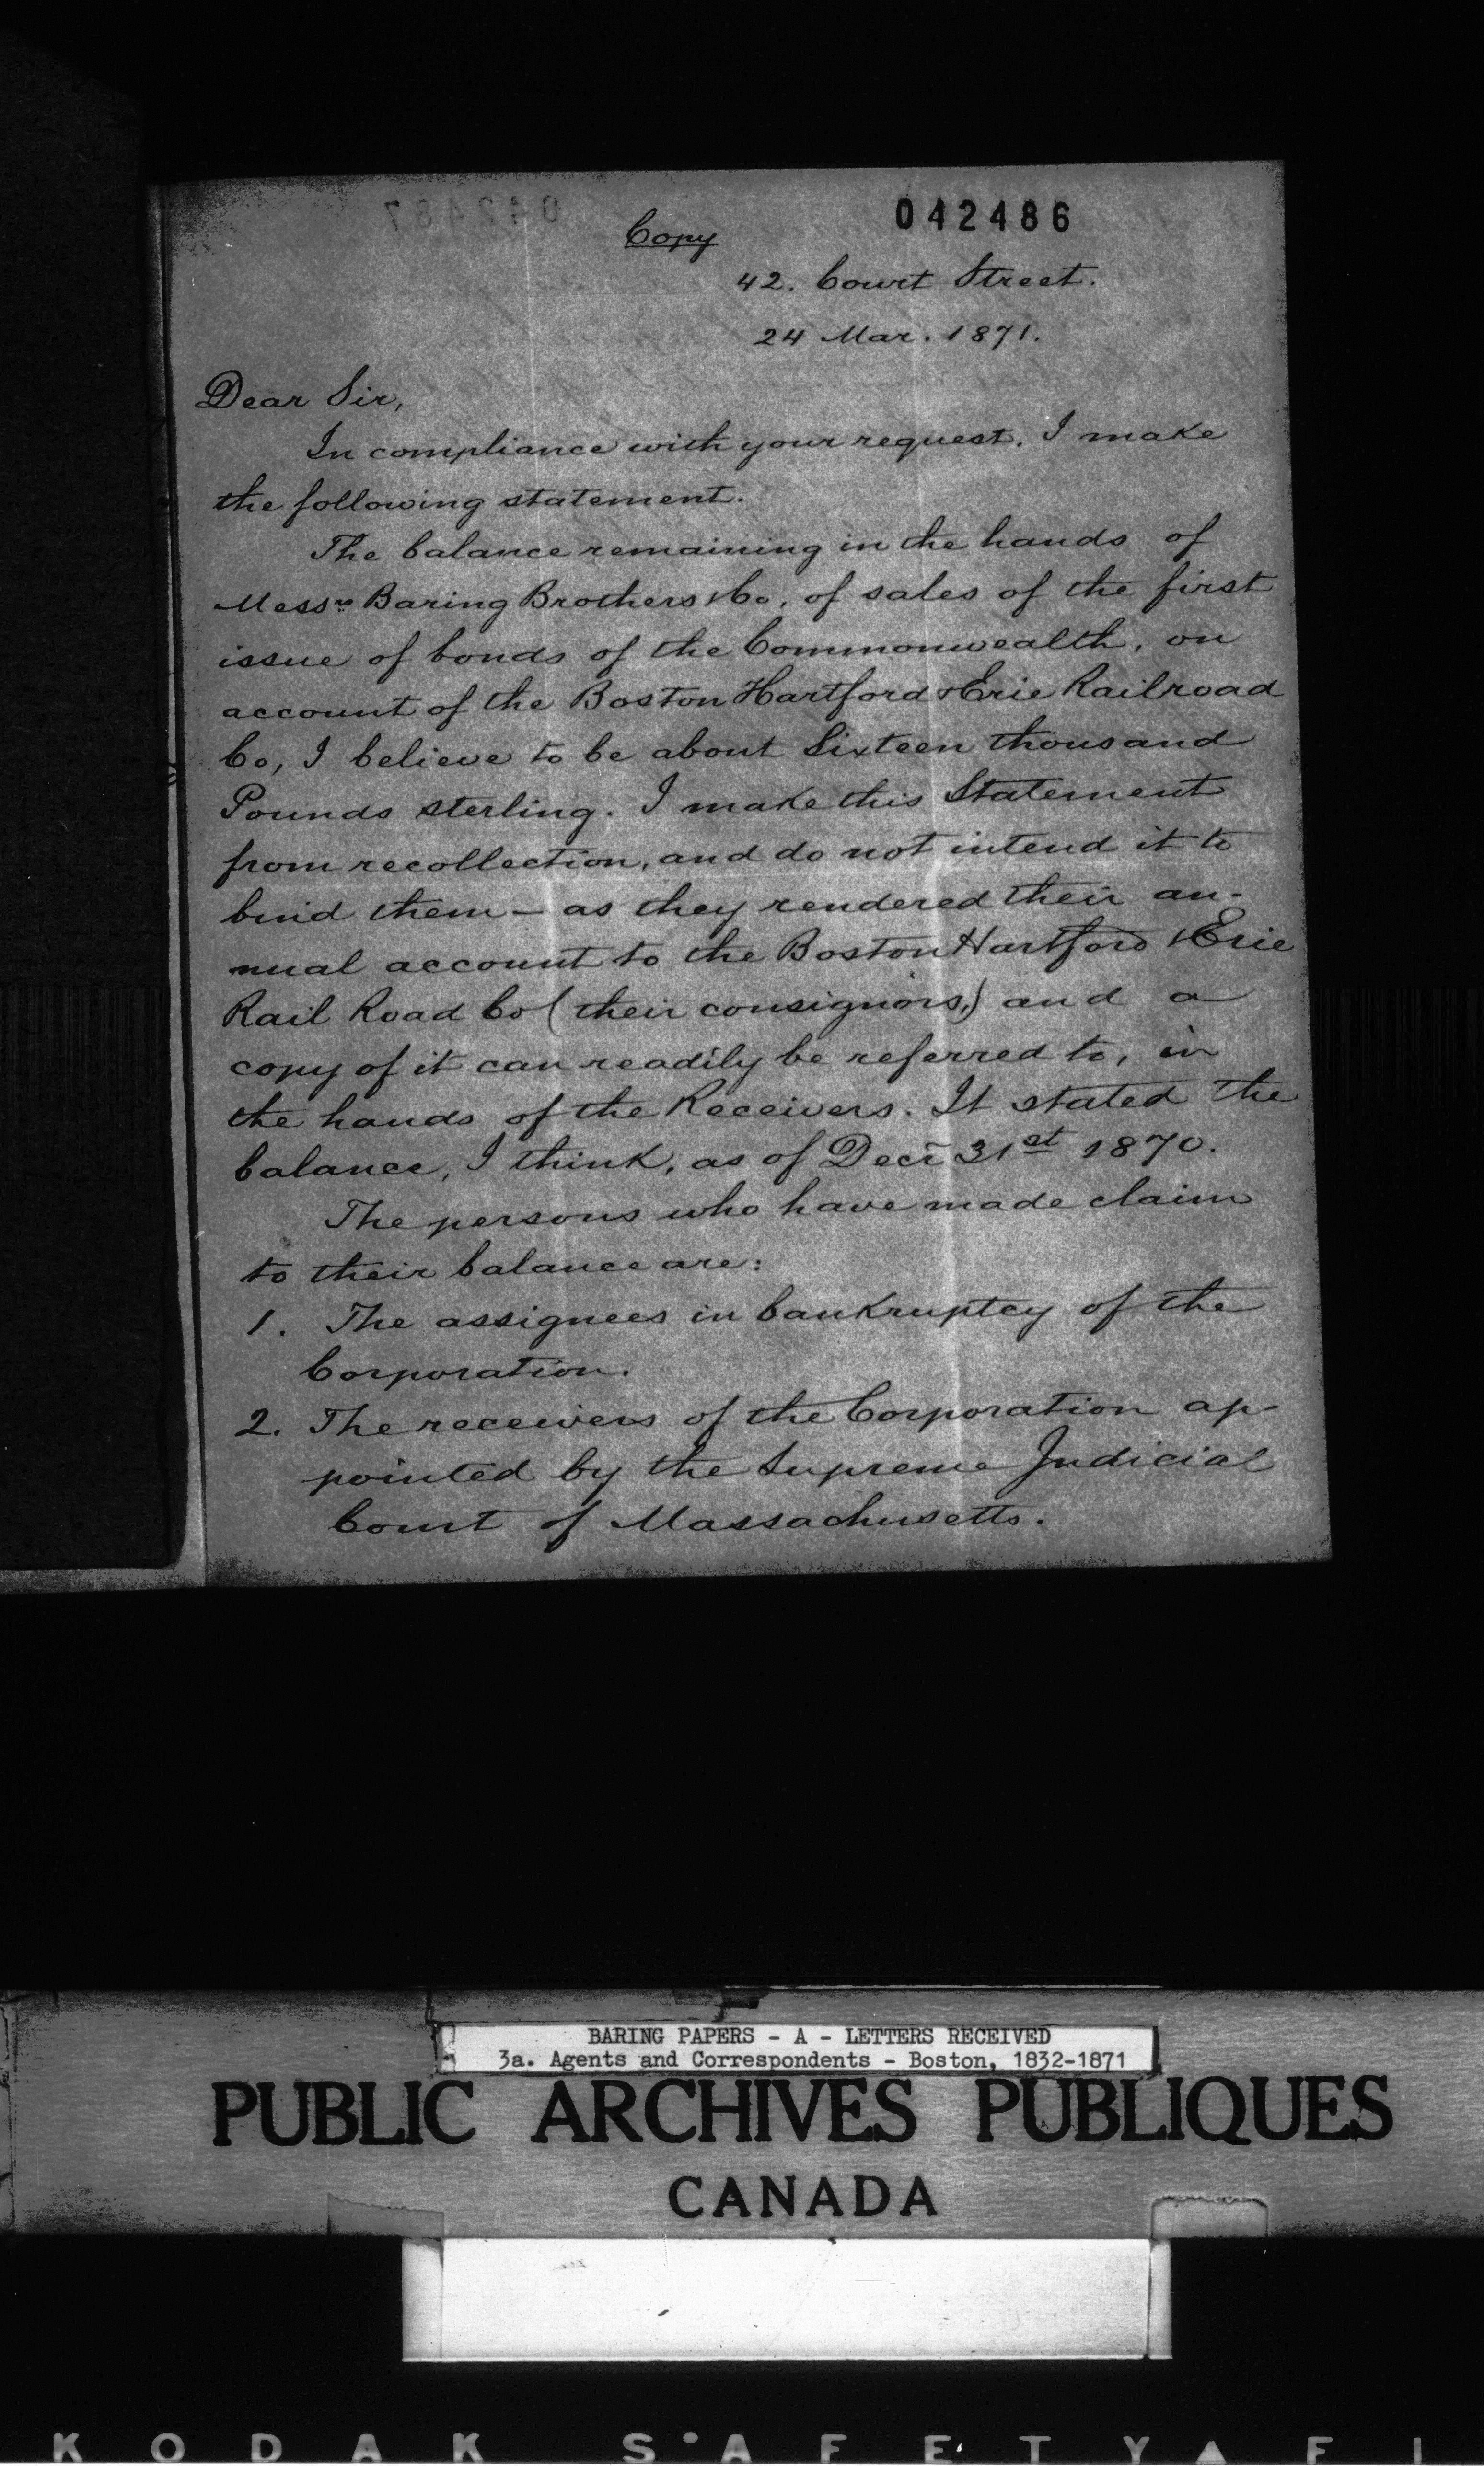 042486
Copy
42. Court Street.
24 Mar. 1871.
Dear Sir,
In compliance with your request, I make
the following statement.
The balance remaining in the hands of
Messrs Baring Brothers & Co, of sales of the first
issue of bonds of the Commonwealth, on
account of the Boston Hartford & Erie Railroad
Co, I believe to be about Sixteen thousand
Pounds sterling. I make this Statement
from recollection, and do not intend it to
bind them — as they rendered their an-
nual account to the Boston Hartford & Erie
Rail Road Co (their consignors,) and a
copy of it can readily be referred to, in
the hands of the Receivers. It stated the
balance, I think, as of Decr 31st 1870.
The persons who have made claim
to their balance are:
1. The assignees in bankruptcy of the
Corporation.
2. The receivers of the Corporation ap-
pointed by the Supreme Judicial
Court of Massachusetts.
BARING PAPERS - A - LETTERS RECEIVED
3a. Agents and Correspondents - Boston, 1832-1871
PUBLIC ARCHIVES PUBLIQUES
CANADA
KODAK SAFETY FI